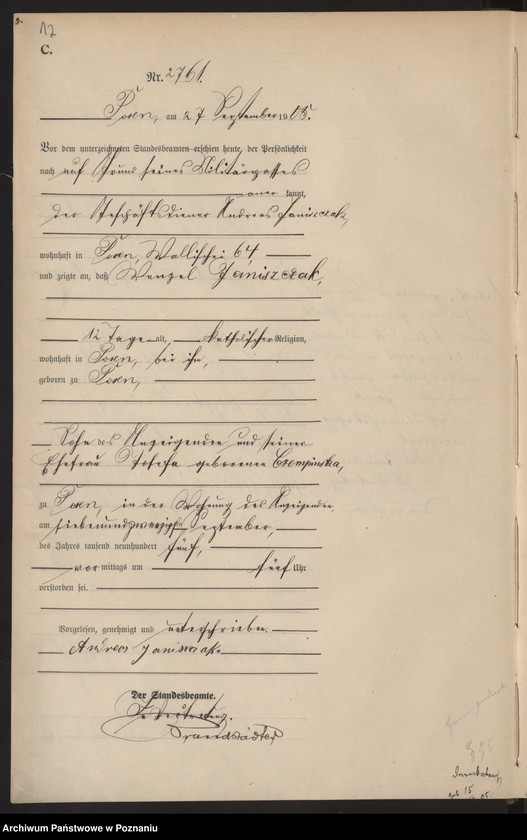 12
C.
Nr. 2761.
Posen, am 27 September 1905.
Vor dem unterzeichneten Standesbeamten erschien heute, der Persönlichkeit
nach auf Grund seines Militärpasses
anerkannt,
der Geschäftsdiener Andreas Janiszczak,
wohnhaft in Posen, Wallischei 64,
und zeigte an, daß Wenzel Janiszczak,
12 Tage alt, katholischer Religion,
wohnhaft in Posen, bei ihm,
geboren zu Posen,
Sohn des Anzeigenden und seiner
Ehefrau Josefa geborenen Czempinska,
zu Posen, in der Wohnung des Anzeigenden
am siebenundzwanzigsten September,
des Jahres tausend neunhundert fünf,
vor mittags um fünf Uhr
verstorben sei.
Vorgelesen, genehmigt und unterschrieben.
Andreas Janiszczak
Der Standesbeamte.
In Vertretung.
Brandstädter
geb. 15
05.
Archiwum Państwowe w Poznaniu